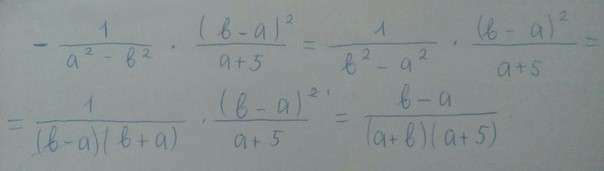 - 1/(a² - b²) · (b - a)²/(a + 5) = 1/(b² - a²) · (b - a)²/(a + 5) =
= 1/((b - a)(b + a)) · (b - a)²/(a + 5) = (b - a)/((a + b)(a + 5))